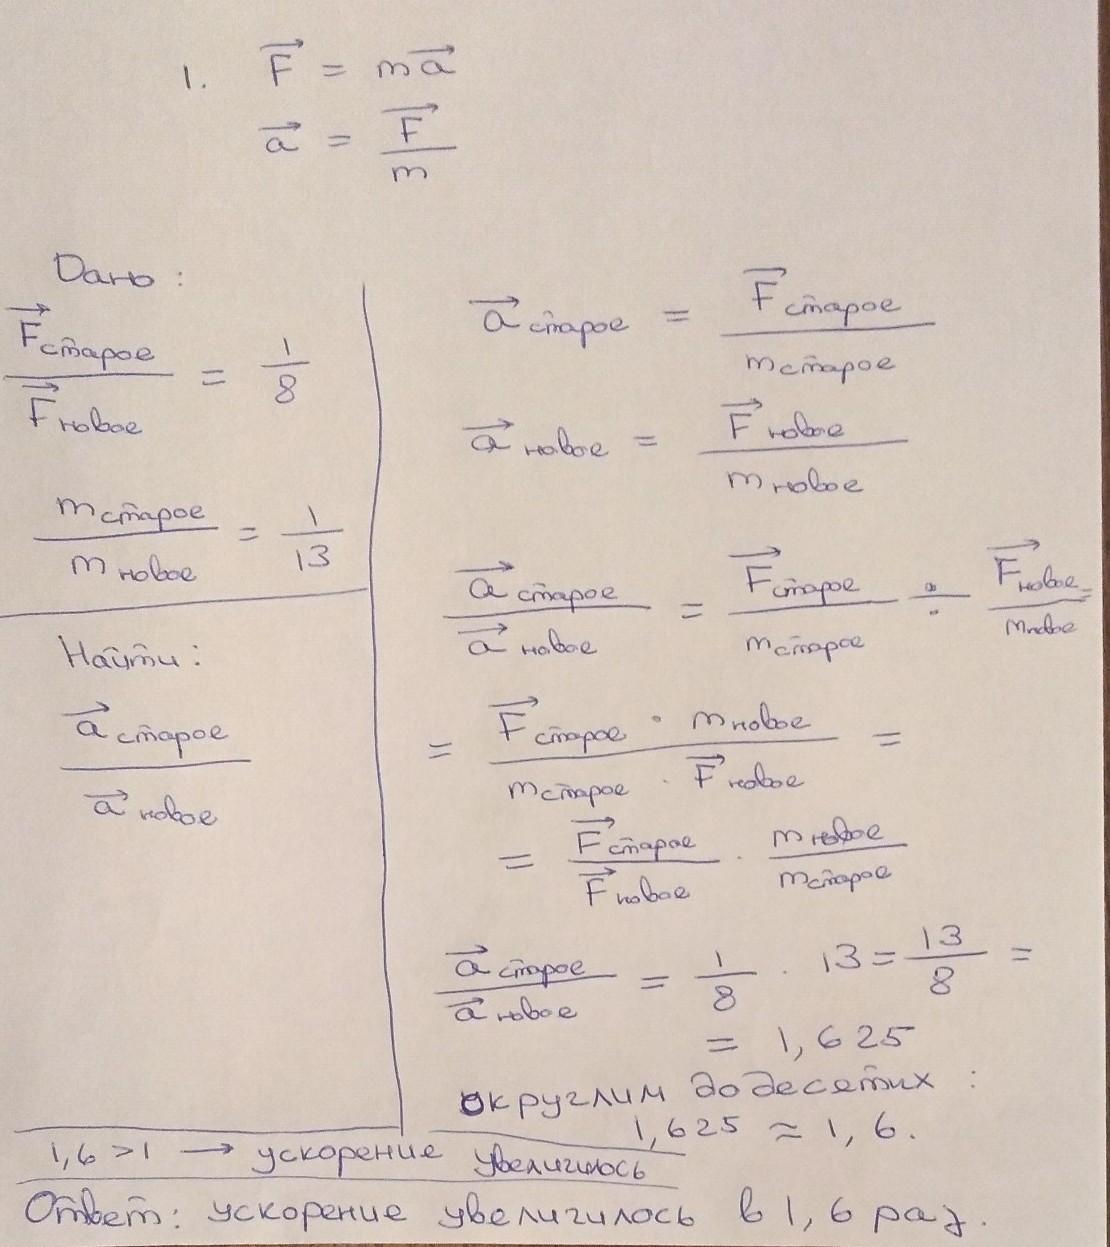 1. F⃗ = ma⃗
a⃗ = F⃗/m
Дано:
F⃗старое/F⃗новое = 1/8
mстарое/mновое = 1/13
Найти:
a⃗старое/a⃗новое
a⃗старое = F⃗старое/mстарое
a⃗новое = F⃗новое/mновое
a⃗старое/a⃗новое = F⃗старое/mстарое ÷ F⃗новое/mновое =
= F⃗старое · mновое/mстарое · F⃗новое =
= F⃗старое/F⃗новое · mновое/mстарое
a⃗старое/a⃗новое = 1/8 · 13 = 13/8 =
= 1,625
округлим до десетих :
1,625 ≈ 1,6.
1,6 > 1 → ускорение увеличилось
Ответ: ускорение увеличилось в 1,6 раз.